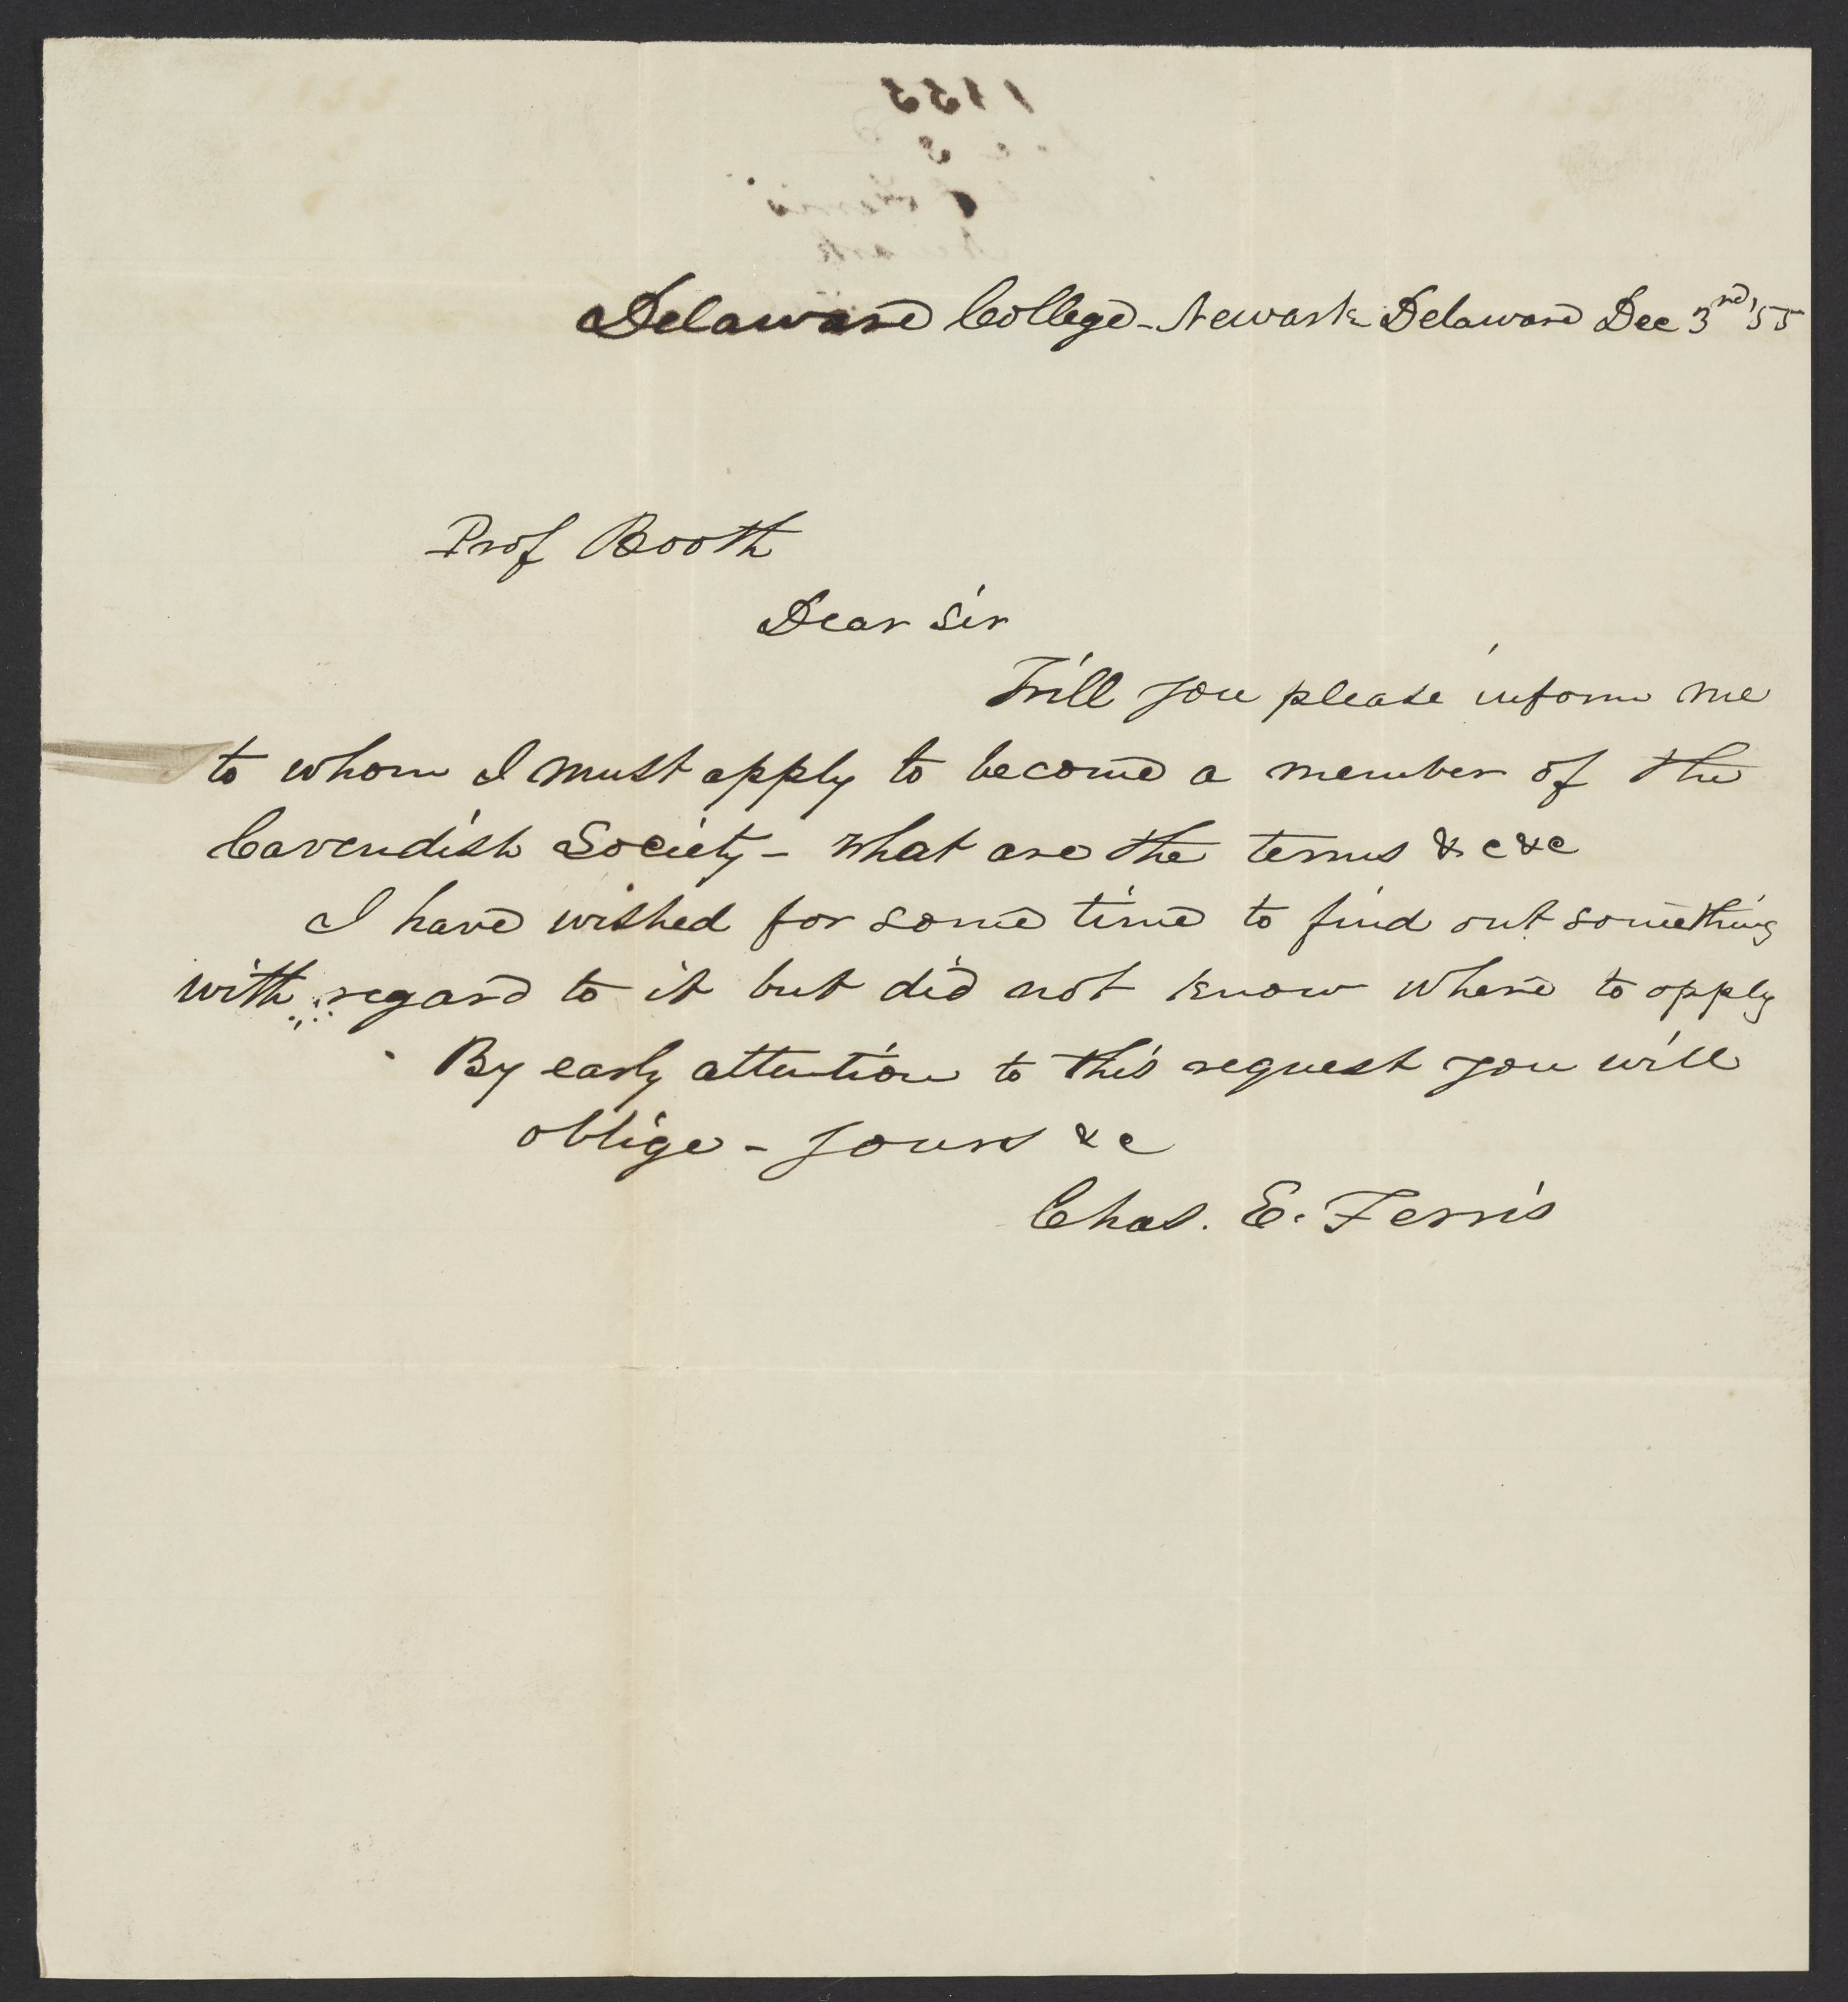 1855
Ferris
Newark
Delaware College - Newark Delaware Dec 3rd '55
Prof Booth
Dear Sir
Will you please inform me
to whom I must apply to become a member of the
Cavendish Society - What are the terms &c &c
I have wished for some time to find out something
with regard to it but did not know where to apply
By early attention to this request you will
oblige - Yours &c
Chas. E. Ferris